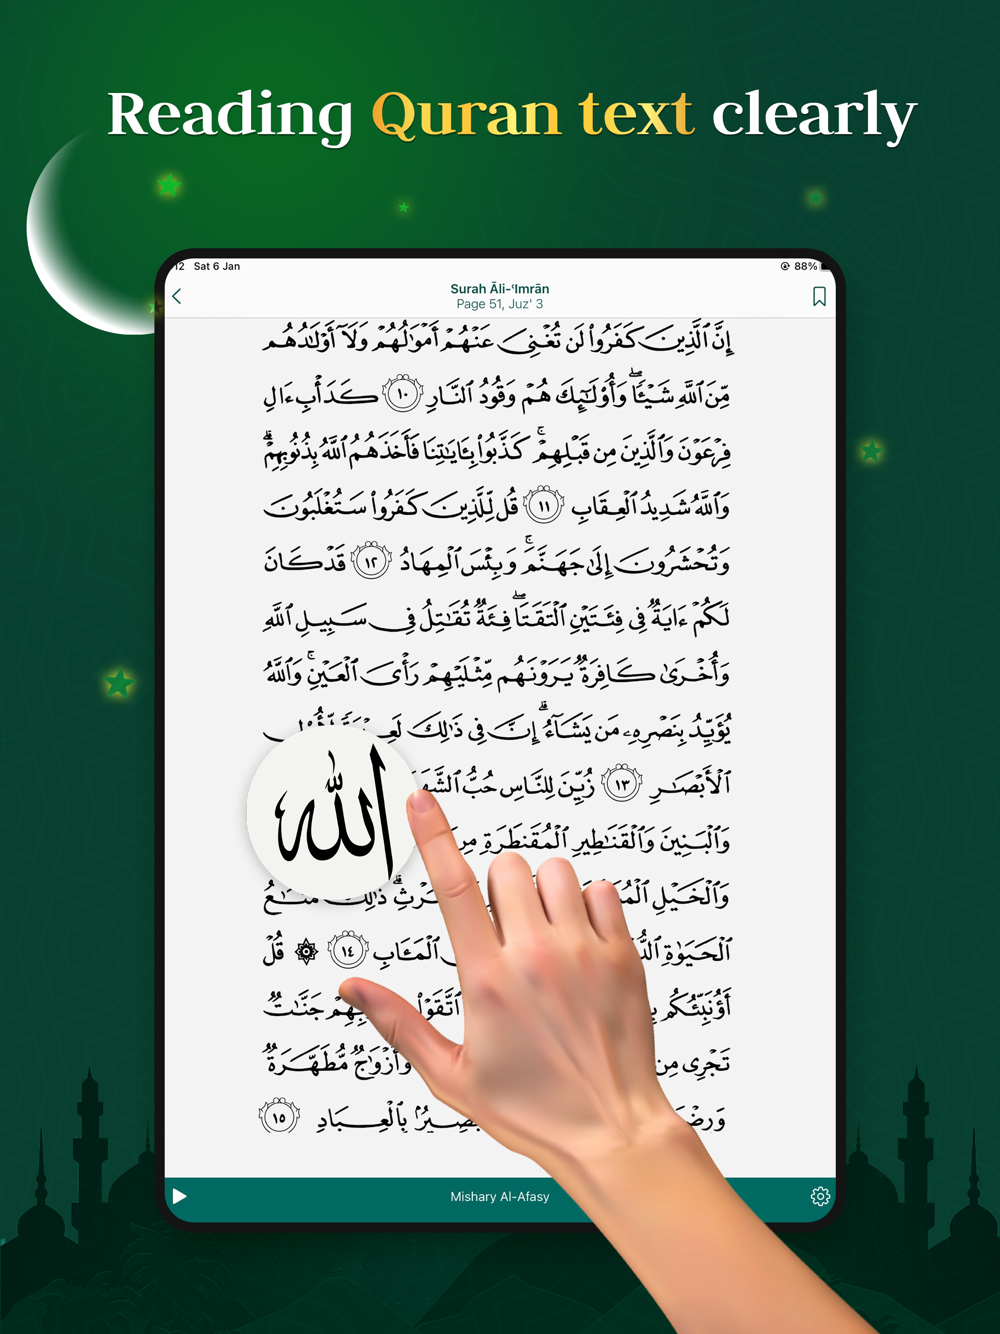 Reading Quran text clearly
12 Sat 6 Jan 88%
Surah Āli-‘Imrān
Page 51, Juz' 3
إِنَّ ٱلَّذِينَ كَفَرُوا۟ لَن تُغْنِىَ عَنْهُمْ أَمْوَٰلُهُمْ وَلَآ أَوْلَٰدُهُم
مِّنَ ٱللَّهِ شَيْـًٔا ۖ وَأُو۟لَٰٓئِكَ هُمْ وَقُودُ ٱلنَّارِ ١٠ كَدَأْبِ ءَالِ
فِرْعَوْنَ وَٱلَّذِينَ مِن قَبْلِهِمْ ۚ كَذَّبُوا۟ بِـَٔايَٰتِنَا فَأَخَذَهُمُ ٱللَّهُ بِذُنُوبِهِمْ ۗ
وَٱللَّهُ شَدِيدُ ٱلْعِقَابِ ١١ قُل لِّلَّذِينَ كَفَرُوا۟ سَتُغْلَبُونَ
وَتُحْشَرُونَ إِلَىٰ جَهَنَّمَ ۚ وَبِئْسَ ٱلْمِهَادُ ١٢ قَدْ كَانَ
لَكُمْ ءَايَةٌ فِى فِئَتَيْنِ ٱلْتَقَتَا ۖ فِئَةٌ تُقَٰتِلُ فِى سَبِيلِ ٱللَّهِ
وَأُخْرَىٰ كَافِرَةٌ يَرَوْنَهُم مِّثْلَيْهِمْ رَأْىَ ٱلْعَيْنِ ۚ وَٱللَّهُ
يُؤَيِّدُ بِنَصْرِهِۦ مَن يَشَآءُ ۗ إِنَّ فِى ذَٰلِكَ
ٱلْأَبْصَٰرِ ١٣ زُيِّنَ لِلنَّاسِ حُبُّ
ٱللَّه
وَٱلْبَنِينَ وَٱلْقَنَٰطِيرِ ٱلْمُقَنطَرَةِ
وَٱلْخَيْلِ ذَٰلِكَ مَتَٰعُ
ٱلْحَيَوٰةِ ٱلْمَـَٔابِ ١٤ ۞ قُلْ
أَؤُنَبِّئُكُم جَنَّٰتٌ
تَجْرِى مِن وَأَزْوَٰجٌ مُّطَهَّرَةٌ
بِٱلْعِبَادِ ١٥
Mishary Al-Afasy